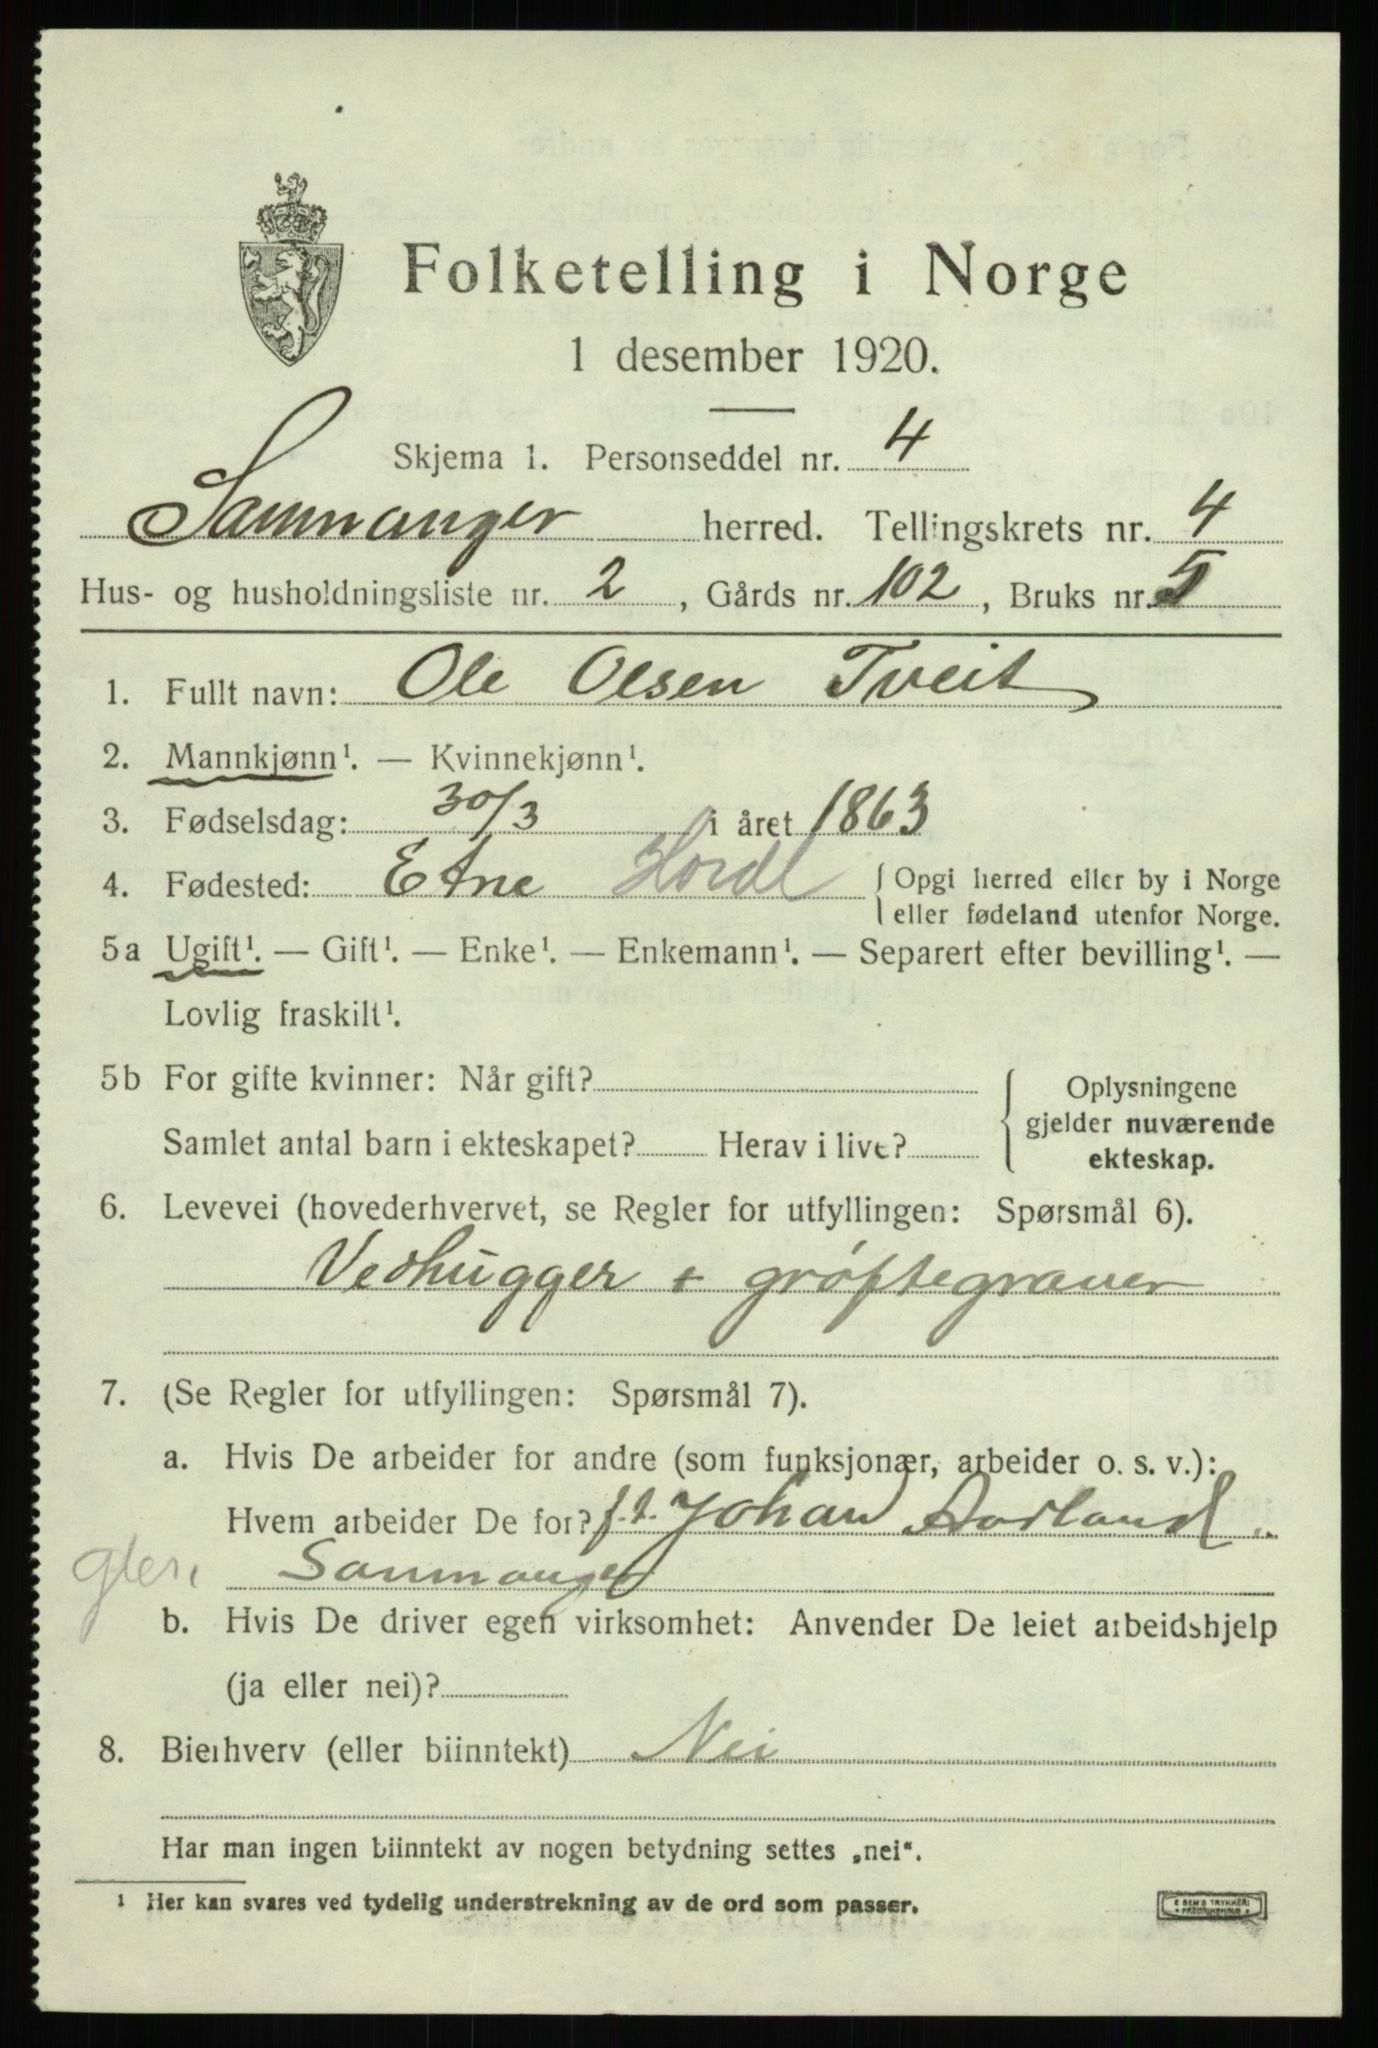 Folketelling i Norge
1 desember 1920.
Skjema 1. Personseddel nr. 4
Samnanger herred. Tellingskrets nr. 4
Hus- og husholdningsliste nr. 2, Gårds nr. 102, Bruks nr. 5
1. Fullt navn: Ole Olsen Tveit
2. Mannkjønn¹. — Kvinnekjønn¹.
3. Fødselsdag: 30/3 i året 1863
4. Fødested: Etne Hordl { Opgi herred eller by i Norge
eller fødeland utenfor Norge.
5a Ugift¹. — Gift¹. — Enke¹. — Enkemann¹. — Separert efter bevilling¹. —
Lovlig fraskilt¹.
5b For gifte kvinner: Når gift?
Samlet antal barn i ekteskapet? Herav i live?
{ Oplysningene
gjelder nuværende
ekteskap.
6. Levevei (hovederhvervet, se Regler for utfyllingen: Spørsmål 6).
Vedhugger + grøftegraver
7. (Se Regler for utfyllingen: Spørsmål 7).
a. Hvis De arbeider for andre (som funksjonær, arbeider o. s. v.):
Hvem arbeider De for? f.t. Johan Aadland
Samnanger
b. Hvis De driver egen virksomhet: Anvender De leiet arbeidshjelp
(ja eller nei)?
8. Bierhverv (eller biinntekt) Nei
Har man ingen biinntekt av nogen betydning settes „nei“.
¹ Her kan svares ved tydelig understrekning av de ord som passer.